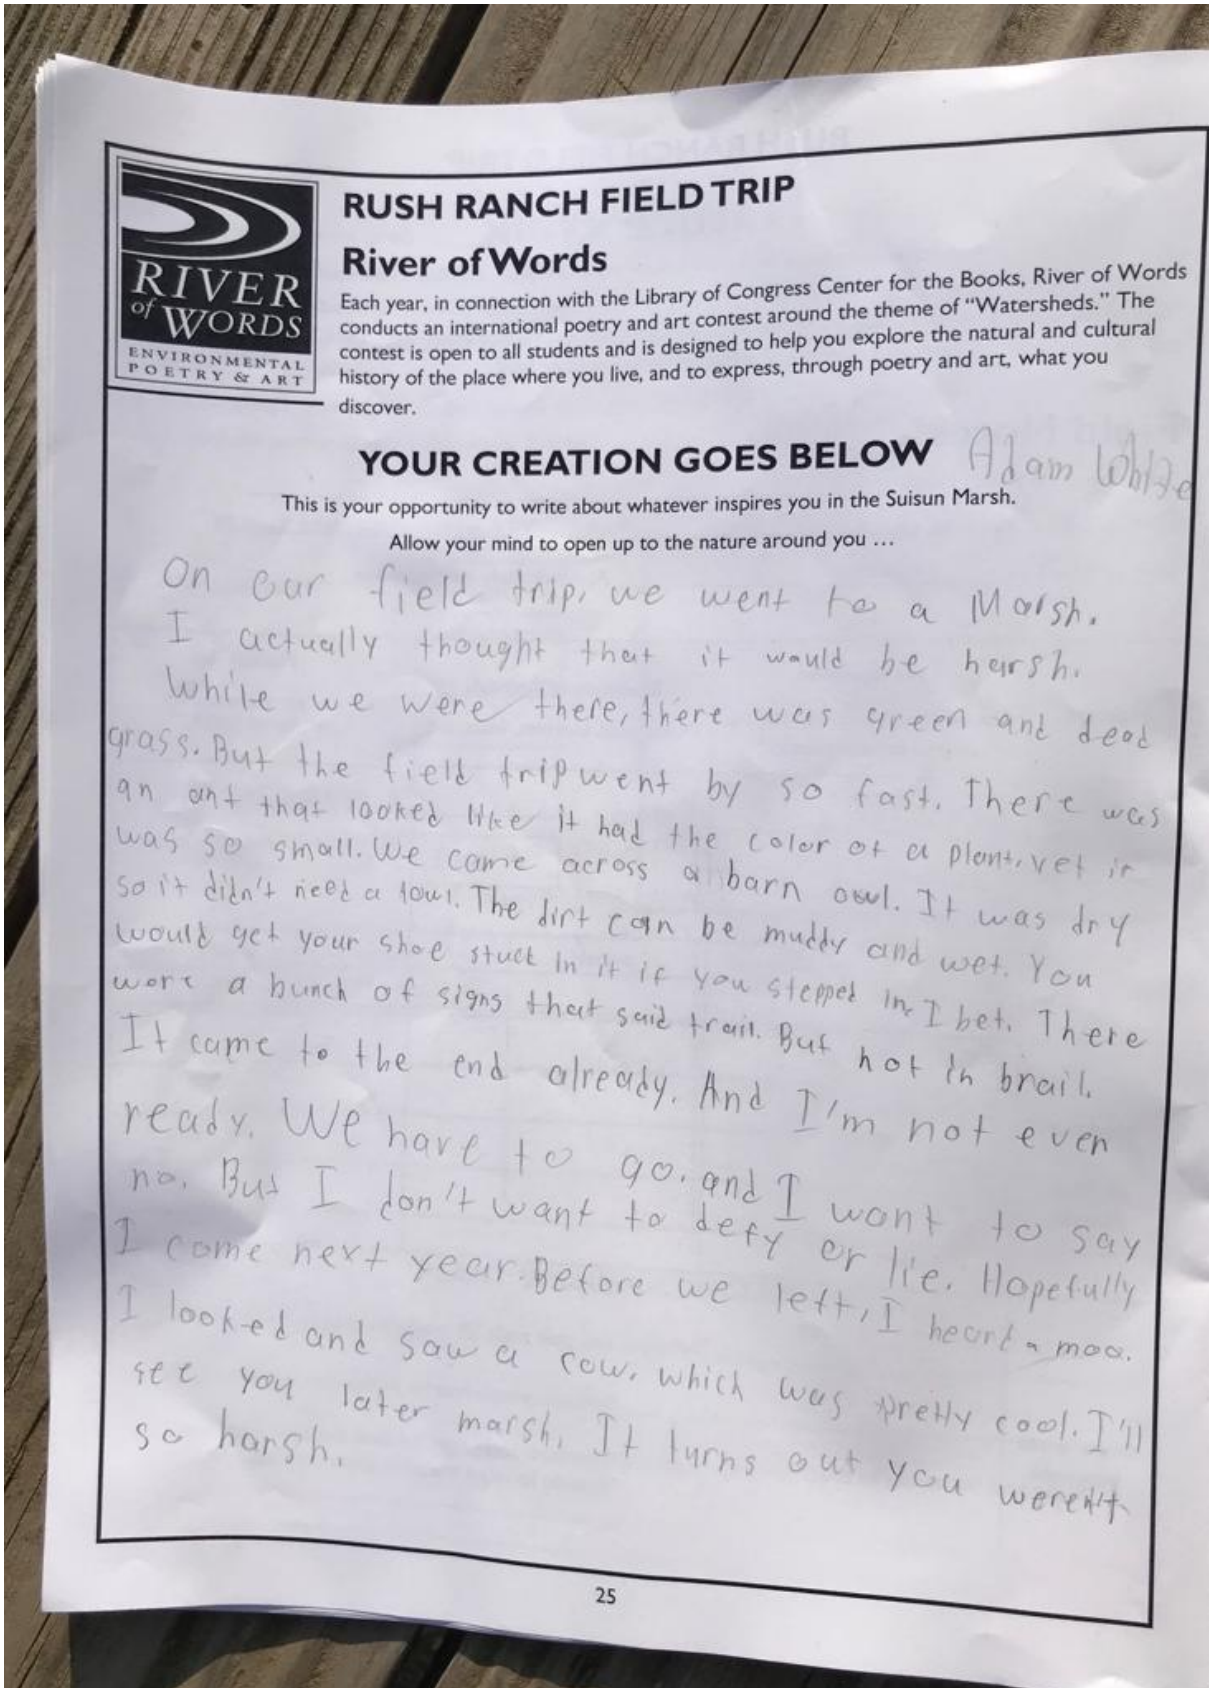 RIVER
of WORDS
ENVIRONMENTAL
POETRY & ART
RUSH RANCH FIELD TRIP
River of Words
Each year, in connection with the Library of Congress Center for the Books, River of Words
conducts an international poetry and art contest around the theme of “Watersheds.” The
contest is open to all students and is designed to help you explore the natural and cultural
history of the place where you live, and to express, through poetry and art, what you
discover.
YOUR CREATION GOES BELOW Adam White
This is your opportunity to write about whatever inspires you in the Suisun Marsh.
Allow your mind to open up to the nature around you ...
On our field trip, we went to a Marsh.
I actually thought that it would be harsh.
While we were there, there was green and dead
grass. But the field trip went by so fast. There was
an ant that looked like it had the color of a plant, yet it
was so small. We came across a barn owl. It was dry
so it didn't need a towl. The dirt can be muddy and wet. You
would get your shoe stuck in it if you stepped in, I bet. There
wore a bunch of signs that said trail. But not in brail.
It came to the end already. And I'm not even
ready. We have to go. and I want to say
no. But I don't want to defy or lie. Hopefully
I come next year. Before we left, I heard a moo.
I looked and saw a cow, which was pretty cool. I'll
see you later marsh. It turns out you weren't
so harsh.
25